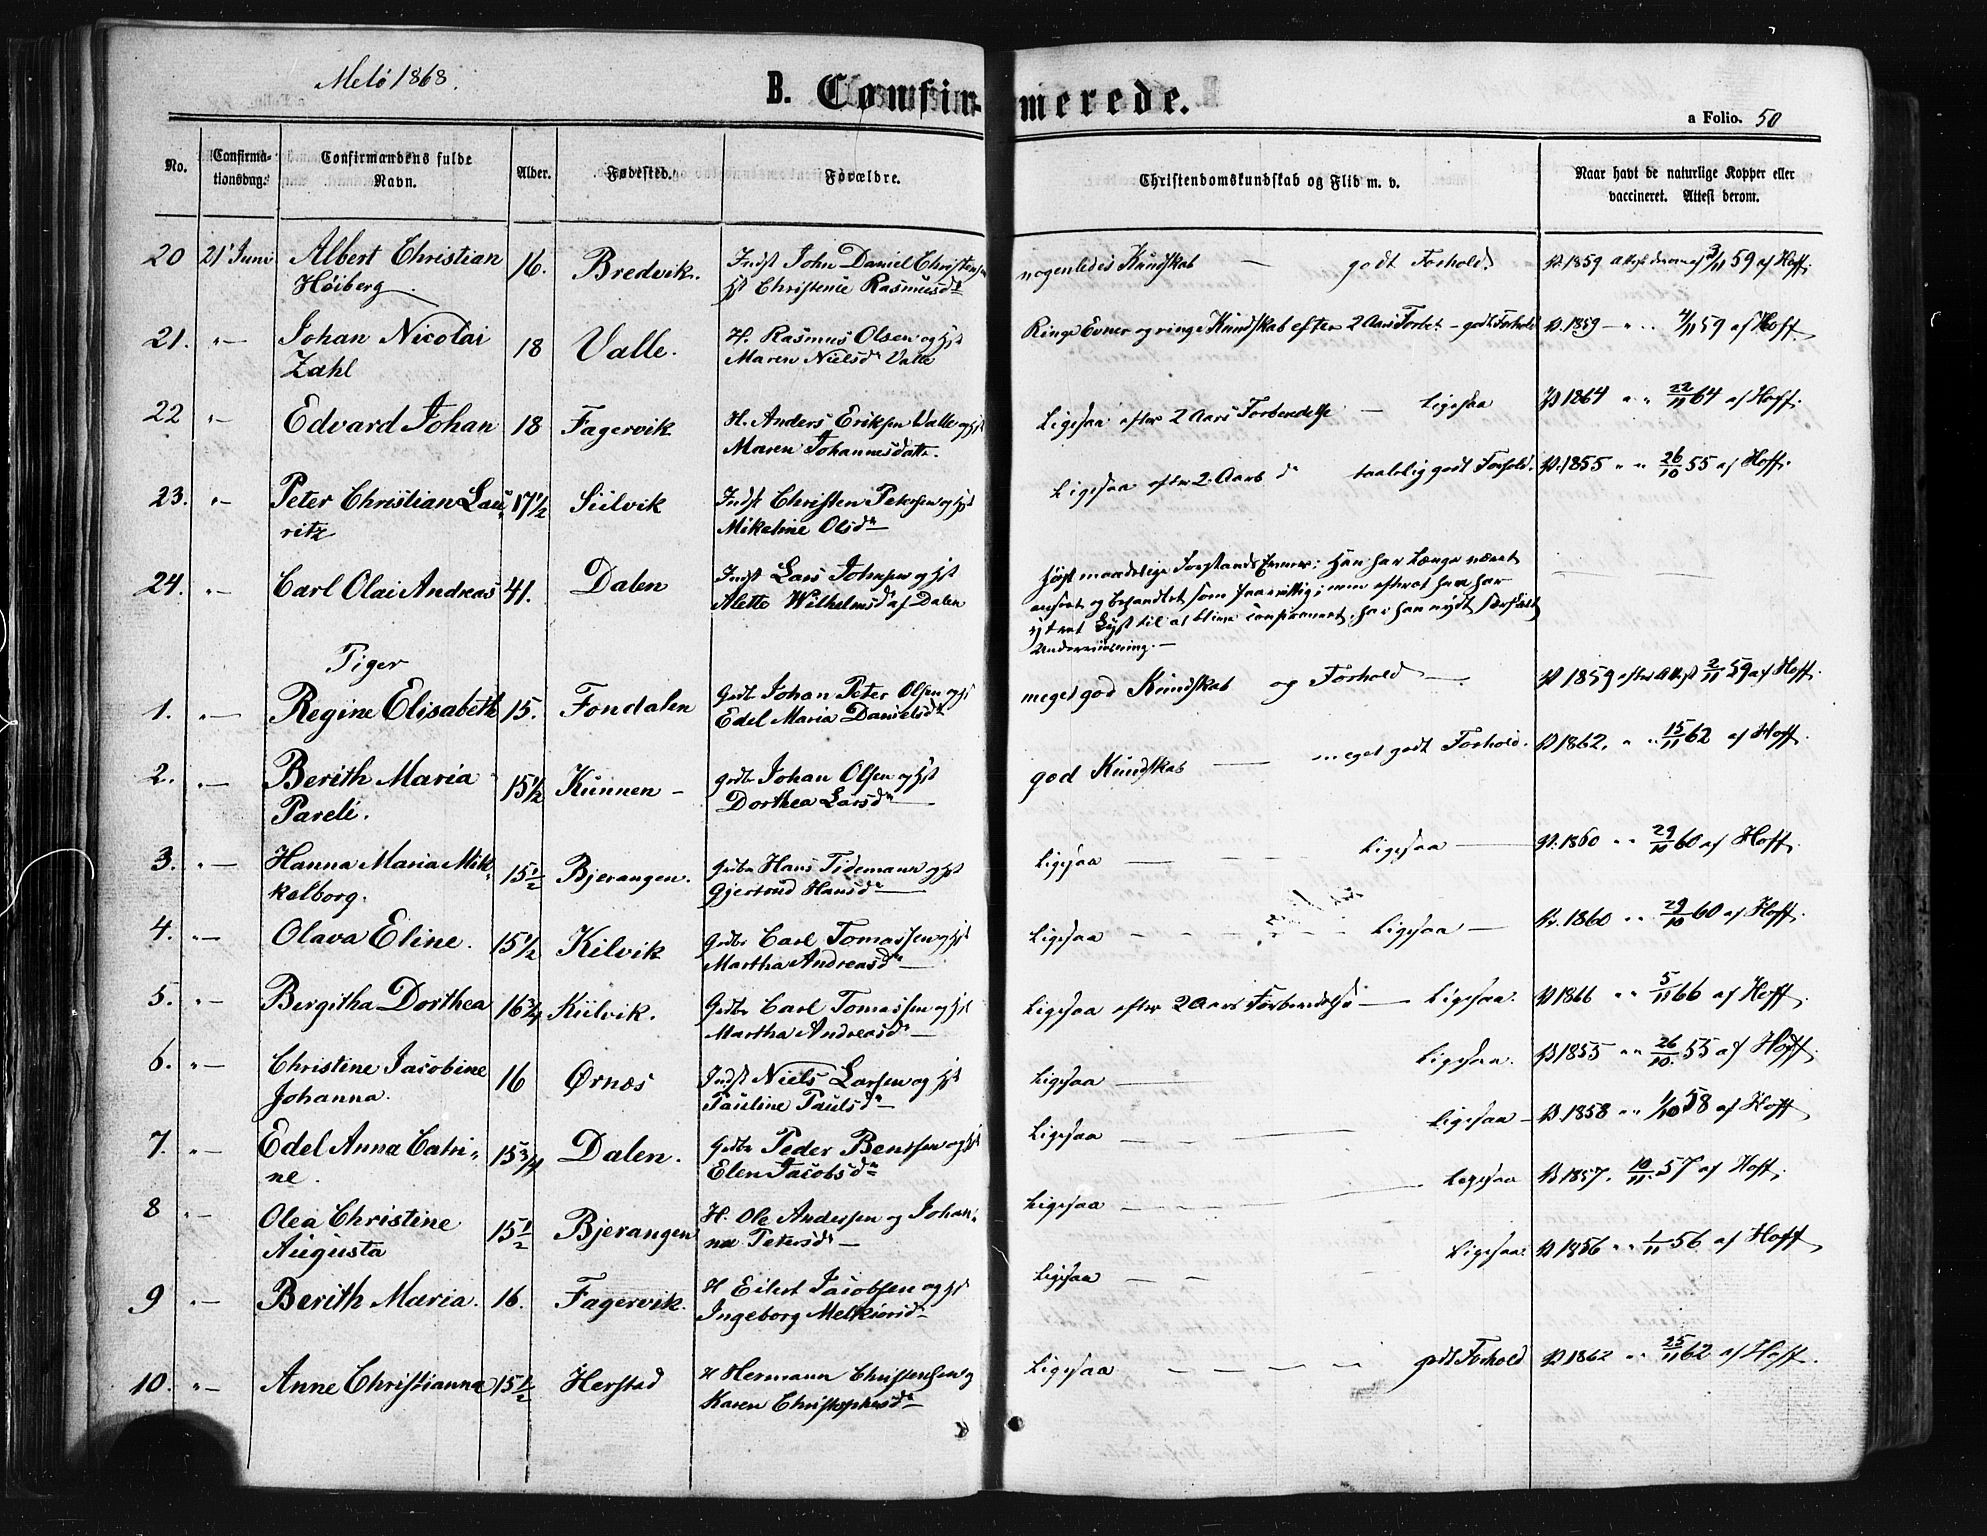 Melö 1868.
B. Confirmerede.
a Folio. 50
No.
Confirma-
tionsdag.
Confirmandens fulde
Navn.
Alder.
Fødested.
Forældre.
Christendomskundskab og Flid m. v.
Naar havt de naturlige Kopper eller
vaccineret. Attest derom.
20 21' Juni Albert Christian 16. Bredvik. Indst John Daniel Christensen nogenledes Kundskab — godt Forhold. V. 1859 Attest derom af 3/11 59 af Hoff.
Höiberg hst Christenie Rasmusdr
21. "— Johan Nicolai 18 Valle. H. Rasmus Olsen og hst Ringe Evner og ringe Kundskab efter 2 Aars Forbet – godt Forhold V. 1859 – " " 4/11 59 af Hoff.
Zahl Maren Nielsdr Valle
22 "— Edvard Johan 18 Fagervik H. Anders Eriksen Valle og hst Ligesaa efter 2 Aars Forberedelse — Ligesaa V 1864 " " 22/11 64 af Hoff.
Maren Johannesdattr.
23. "— Peter Christian Lau- 17 1/2 Sülvik Indst Christen Petersen og hst Ligesaa efter 2 Aars do taalelig godt Forhold. V. 1855 " " 26/10 55 af Hoff.
ritz Mikaline Olsdr
24. "— Carl Olai Andreas 41. Dalen Indst Lars Johnsen og hst
Alette Wilhelmsd af Dalen
höist maadelige Forstands Evner; Han har længe været
anseet og behandlet som ; men efterat han har
ytret Lyst til at blive confirmeret, har han nydt
Underviisning.—
Piger
1. "— Regine Elisabeth 15. Fondalen Grdbr Johan Peter Olsen og hst meget god Kundskab og Forhold —. V 1859 efter Attest 2/11 59 af Hoff.
Edel Maria Danielsdr
2. "— Berith Maria 15 1/2 Kunnen – Grdbr Johan Olsen og hst god Kundskab — meget godt Forhold. V 1862. " " 15/11 62 af Hoff.
Pareli. Dorthea Larsdr
3. "— Hanna Maria Mik- 15 1/2 Bjerangen. Grdbr Hans Tidemann og hst Ligesaa — Ligesaa — V. 1860 " " 29/10 60 af Hoff.
kelborg. Gjertrud Hansdr
4. "— Olava Eline. 15 1/2 Kilvik Grdbr Carl Tomassen og hst Ligesaa — Ligesaa — V. 1860 " " 29/10 60 af Hoff.
Martha Andreasdr
5. "— Bergitha Dorthea 16 3/4 Kiilvik. Grdbr Carl Tomassen og hst Ligesaa efter 2 Aars Forberedelse — Ligesaa. V 1866 " " 5/11 66 af Hoff.
Martha Andreasdr
6. "— Christine Jacobine 16 Ørnæs Indst Niels Larsen og hst Ligesaa — Ligesaa. V 1855 " " 26/10 55 af Hoff.
Johanna. Pauline Paulsdr
7. "— Edel Anna Catri- 15 3/4 Dalen. Grdbr Peder Bentsen og hst Ligesaa — Ligesaa – V 1858 " " 1/10 58 af Hoff
ne. Elen Jacobsdr
8 "— Olea Christine 15 1/2 Bjerangen H. Ole Andersen og Johan- Ligesaa — Ligesaa V 1857. 10/11 57 af Hoff.
Augusta na Petersdr
9 "— Berith Maria. 16. Fagervik. H Eilert Jacobsen og hst Ligesaa — Ligesaa. V 1856 " " 1/11 56 af Hoff.
Ingeborg Melkiorsdr
10. "— Anne Christianna 15 1/2 Herstad H Hermann Christensen og Ligesaa — godt Forhold V 1862 " " 25/11 62 af Hoff.
Karen Christophersdr